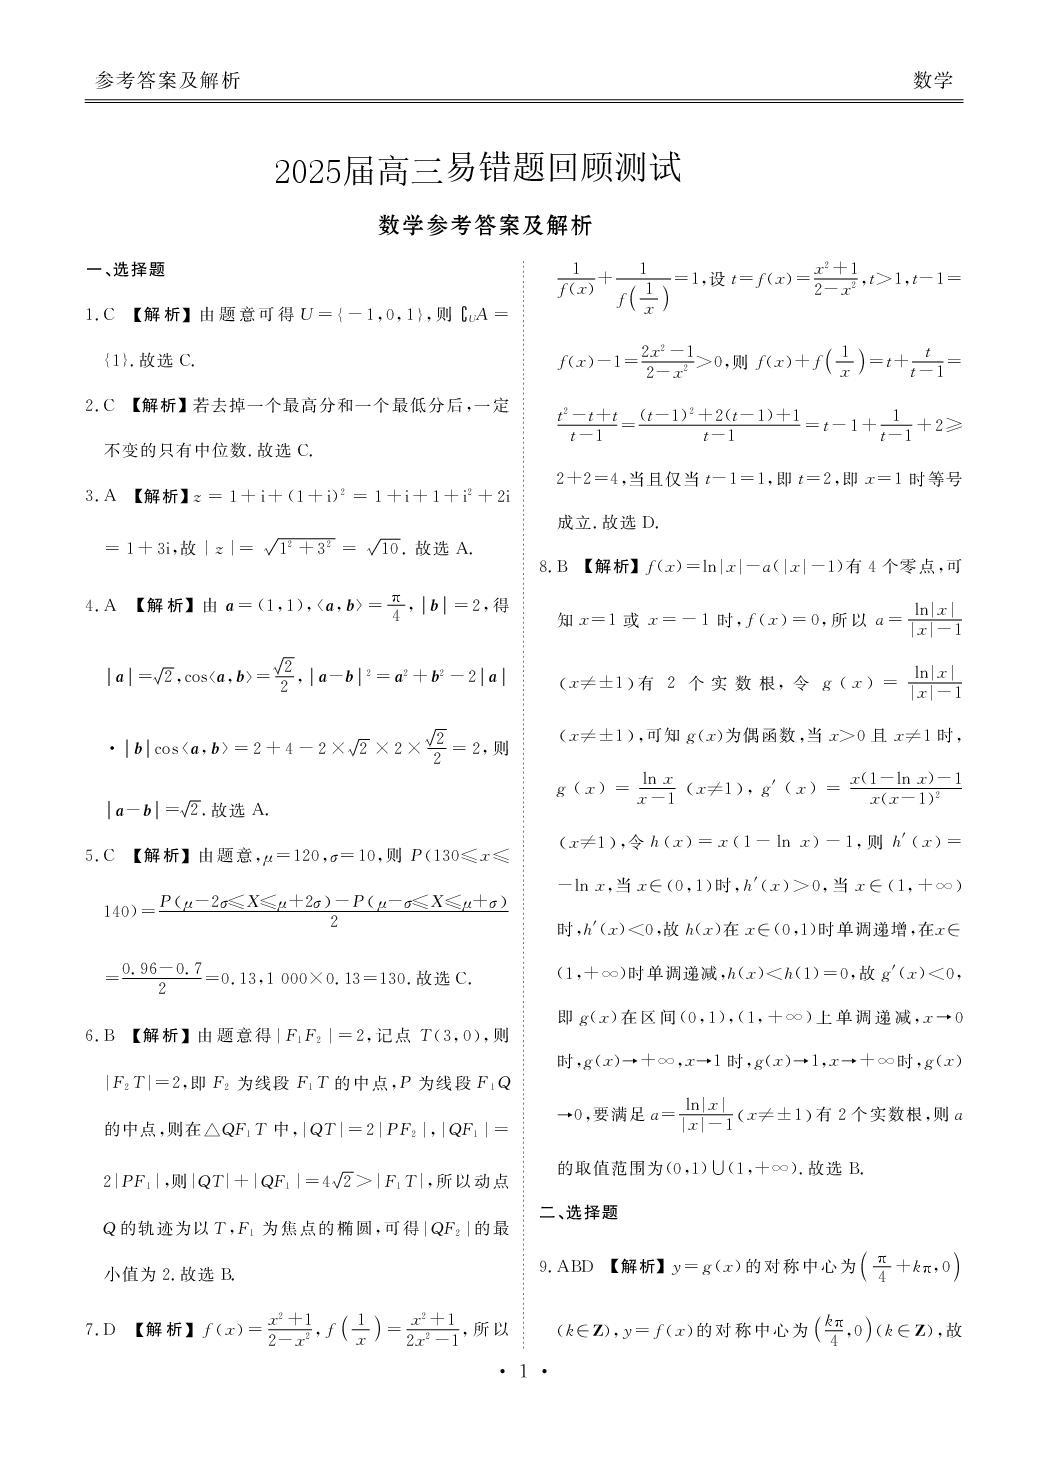 参考答案及解析
数学
2025届高三易错题回顾测试
数学参考答案及解析
一、选择题
1. C 【解析】由题意可得 U={-1,0,1},则 ∁_U A=
{1}. 故选 C.
2. C 【解析】若去掉一个最高分和一个最低分后,一定
不变的只有中位数. 故选 C.
3. A 【解析】z=1+i+(1+i)²=1+i+1+i²+2i
=1+3i,故|z|=√(1²+3²)=√10. 故选 A.
4. A 【解析】由 a=(1,1),⟨a,b⟩=π/4,|b|=2,得
|a|=√2,cos⟨a,b⟩=√2/2,|a-b|²=a²+b²-2|a|
·|b|cos⟨a,b⟩=2+4-2×√2×2×√2/2=2,则
|a-b|=√2. 故选 A.
5. C 【解析】由题意,μ=120,σ=10,则 P(130≤x≤
140)=(P(μ-2σ≤X≤μ+2σ)-P(μ-σ≤X≤μ+σ))/2
=(0.96-0.7)/2=0.13,1 000×0.13=130. 故选 C.
6. B 【解析】由题意得|F₁F₂|=2,记点 T(3,0),则
|F₂T|=2,即 F₂ 为线段 F₁T 的中点,P 为线段 F₁Q
的中点,则在△QF₁T 中,|QT|=2|PF₂|,|QF₁|=
2|PF₁|,则|QT|+|QF₁|=4√2>|F₁T|,所以动点
Q 的轨迹为以 T,F₁ 为焦点的椭圆,可得|QF₂|的最
小值为 2. 故选 B.
7. D 【解析】f(x)=(x²+1)/(2-x²),f(1/x)=(x²+1)/(2x²-1),所以
1/f(x)+1/f(1/x)=1,设 t=f(x)=(x²+1)/(2-x²),t>1,t-1=
f(x)-1=(2x²-1)/(2-x²)>0,则 f(x)+f(1/x)=t+t/(t-1)=
(t²-t+t)/(t-1)=((t-1)²+2(t-1)+1)/(t-1)=t-1+1/(t-1)+2≥
2+2=4,当且仅当 t-1=1,即 t=2,即 x=1 时等号
成立. 故选 D.
8. B 【解析】f(x)=ln|x|-a(|x|-1)有 4 个零点,可
知 x=1 或 x=-1 时,f(x)=0,所以 a=ln|x|/(|x|-1)
(x≠±1)有 2 个实数根,令 g(x)=ln|x|/(|x|-1)
(x≠±1),可知 g(x)为偶函数,当 x>0 且 x≠1 时,
g(x)=ln x/(x-1)(x≠1),g′(x)=(x(1-ln x)-1)/(x(x-1)²)
(x≠1),令 h(x)=x(1-ln x)-1,则 h′(x)=
-ln x,当 x∈(0,1)时,h′(x)>0,当 x∈(1,+∞)
时,h′(x)<0,故 h(x)在 x∈(0,1)时单调递增,在x∈
(1,+∞)时单调递减,h(x)<h(1)=0,故 g′(x)<0,
即 g(x)在区间(0,1),(1,+∞)上单调递减,x→0
时,g(x)→+∞,x→1 时,g(x)→1,x→+∞时,g(x)
→0,要满足 a=ln|x|/(|x|-1)(x≠±1)有 2 个实数根,则 a
的取值范围为(0,1)∪(1,+∞). 故选 B.
二、选择题
9. ABD 【解析】y=g(x)的对称中心为(π/4+kπ,0)
(k∈Z),y=f(x)的对称中心为(kπ/4,0)(k∈Z),故
· 1 ·